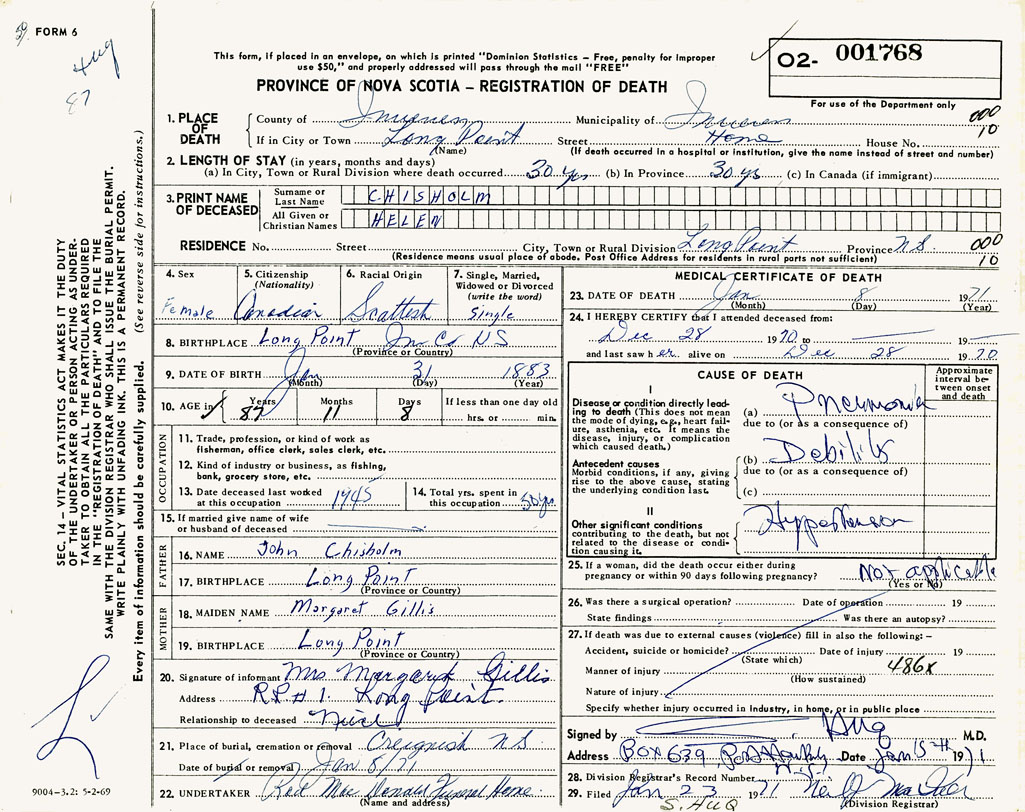 FORM 6
Aug
87
This form, if placed in an envelope, on which is printed "Dominion Statistics – Free, penalty for improper
use $50," and properly addressed will pass through the mail "FREE"
O2- 001768
For use of the Department only
PROVINCE OF NOVA SCOTIA – REGISTRATION OF DEATH
1. PLACE OF DEATH
County of Inverness Municipality of Inverness 000
If in City or Town Long Point Street Home House No. 10
(Name) (If death occurred in a hospital or institution, give the name instead of street and number)
2. LENGTH OF STAY (in years, months and days)
(a) In City, Town or Rural Division where death occurred 30 yrs (b) In Province 30 ys (c) In Canada (if immigrant)
3. PRINT NAME OF DECEASED
Surname or Last Name CHISHOLM
All Given or Christian Names HELEN
RESIDENCE No. Street City, Town or Rural Division Long Point Province N S 000
(Residence means usual place of abode. Post Office Address for residents in rural parts not sufficient) 10
4. Sex Female
5. Citizenship (Nationality) Canadian
6. Racial Origin Scottish
7. Single, Married, Widowed or Divorced (write the word) Single
8. BIRTHPLACE Long Point In. Co NS
(Province or Country)
9. DATE OF BIRTH Jan 31 1883
(Month) (Day) (Year)
10. AGE in Years 87 Months 11 Days 8 If less than one day old hrs. or min.
OCCUPATION
11. Trade, profession, or kind of work as fisherman, office clerk, sales clerk, etc.
12. Kind of industry or business, as fishing, bank, grocery store, etc.
13. Date deceased last worked at this occupation 1945
14. Total yrs. spent in this occupation 50 yrs
15. If married give name of wife or husband of deceased
FATHER
16. NAME John Chisholm
17. BIRTHPLACE Long Point
(Province or Country)
MOTHER
18. MAIDEN NAME Margaret Gillis
19. BIRTHPLACE Long Point
(Province or Country)
20. Signature of informant Mrs Margaret Gillis
Address RR#1 Long Point
Relationship to deceased Niece
21. Place of burial, cremation or removal Creignish N S
Date of burial or removal Jan 8/71
22. UNDERTAKER Rod Mac Donald Funeral Home
(Name and address)
MEDICAL CERTIFICATE OF DEATH
23. DATE OF DEATH Jan 8 1971
(Month) (Day) (Year)
24. I HEREBY CERTIFY that I attended deceased from:
Dec 28 1970 to 19
and last saw her alive on Dec 28 1970
CAUSE OF DEATH
Approximate interval between onset and death
I
Disease or condition directly leading to death (This does not mean the mode of dying, e.g., heart failure, asthenia, etc. It means the disease, injury, or complication which caused death.)
(a) Pneumonia
due to (or as a consequence of)
Antecedent causes
Morbid conditions, if any, giving rise to the above cause, stating the underlying condition last.
(b) Debility
due to (or as a consequence of)
(c)
II
Other significant conditions contributing to the death, but not related to the disease or condition causing it.
Hypertension
25. If a woman, did the death occur either during pregnancy or within 90 days following pregnancy? Not applicable
(Yes or No)
26. Was there a surgical operation? Date of operation 19
State findings Was there an autopsy?
27. If death was due to external causes (violence) fill in also the following: –
Accident, suicide or homicide? Date of injury 19
(State which)
Manner of injury 486x
(How sustained)
Nature of injury
Specify whether injury occurred in Industry, in home, or in public place
Signed by Huq M.D.
Address Box 639, Port Hawkesbury Date Jan 15th 1971
N.S.
28. Division Registrar's Record Number
29. Filed Jan 23 1971
S. HUQ (Division Registrar)
SEC. 14 – VITAL STATISTICS ACT MAKES IT THE DUTY
OF THE UNDERTAKER OR PERSON ACTING AS UNDER-
TAKER TO OBTAIN ALL THE PARTICULARS REQUIRED
IN THE "REGISTRATION OF DEATH" AND TO FILE THE
SAME WITH THE DIVISION REGISTRAR WHO SHALL ISSUE THE BURIAL PERMIT.
WRITE PLAINLY WITH UNFADING INK. THIS IS A PERMANENT RECORD.
Every item of information should be carefully supplied. (See reverse side for instructions.)
9004-3.2: 5-2-69